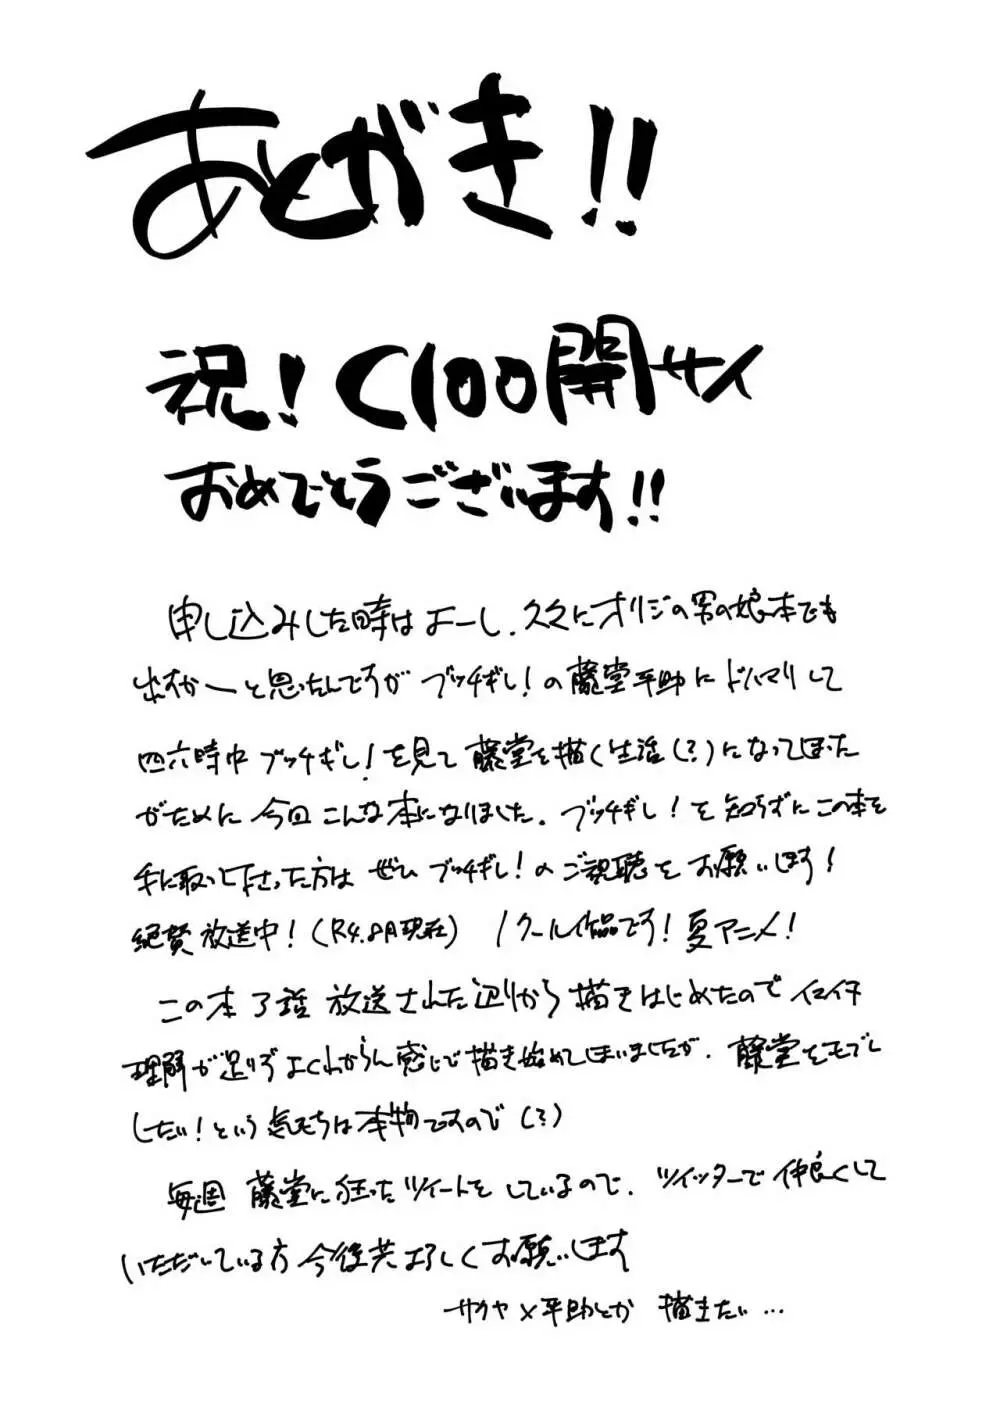 あとがき!!
祝!C100開サイ
おめでとうございます!!
申し込みした時はよーし、久々にオリジの男の娘本でも
出すかーと思ったんですが ブッチギレ!の藤堂平助にドハマりして
四六時中ブッチギレ!を見て藤堂を描く生活(?)になってしまった
がために今回こんな本になりました。ブッチギレ!を知らずにこの本を
手に取って下さった方は ぜひ ブッチギレ!のご視聴をお願いします!
絶賛放送中!(R4.8月現在) 1クール作品です!夏アニメ!
この本 3話 放送された辺りから描きはじめたので イマイチ
理解が足りずよくわからん感じで描き始めてしまいましたが、藤堂をモブレ
したい!という気もちは本物ですので(?)
毎週 藤堂に狂ったツイートをしているので、ツイッターで仲良くして
いただいている方 今後共よろしくお願いします
サクヤ×平助とか 描きたい…